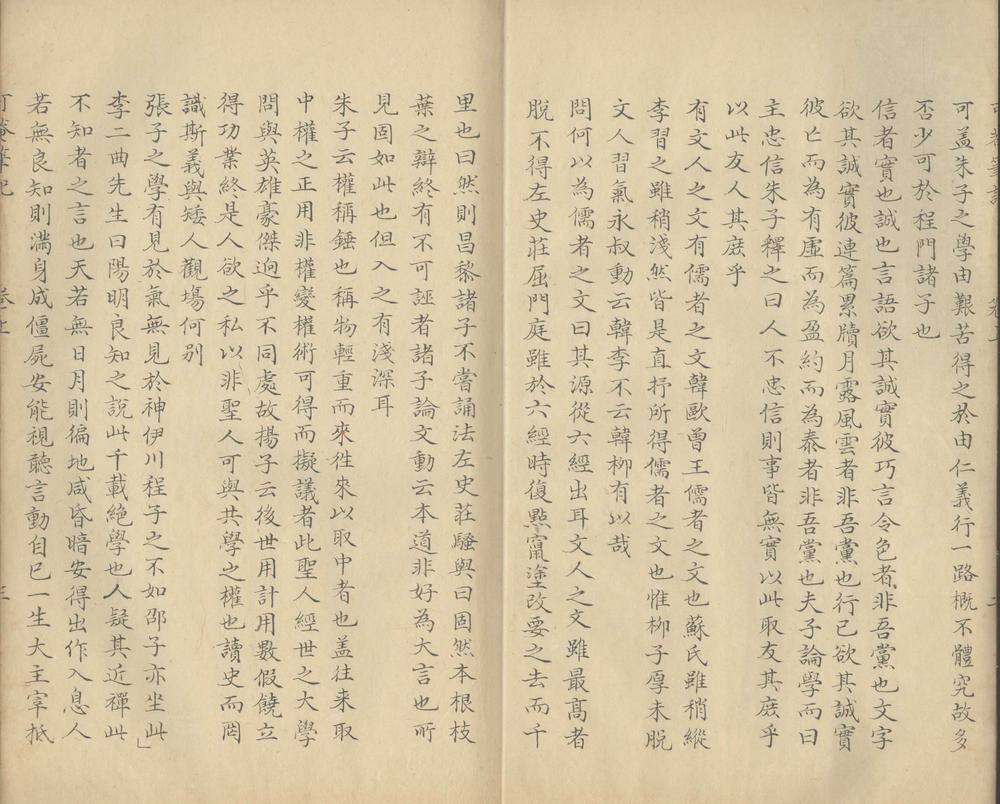 可盖朱子之學由艱苦得之於由仁義行一路概不體究故多
否少可於程門諸子也
信者實也誠也言語欲其誠實彼巧言令色者非吾黨也文字
欲其誠實彼連篇累牘月露風雲者非吾黨也行已欲其誠實
彼亡而為有虛而為盈約而為泰者非吾黨也夫子論學而曰
主忠信朱子釋之曰人不忠信則事皆無實以此取友其庶乎
以此友人其庶乎
有文人之文有儒者之文韓歐曾王儒者之文也蘇氏雖稍縱
李習之雖稍淺然皆是直抒所得儒者之文也惟柳子厚未脫
文人習氣永叔動云韓李不云韓柳有以哉
問何以為儒者之文曰其源從六經出耳文人之文雖最高者
脫不得左史莊屈門庭雖於六經時復㸃竄塗改要之去而千
里也曰然則昌黎諸子不嘗誦法左史莊騷與曰固然本根枝
葉之辯終有不可誣者諸子論文動云本道非好為大言也所
見固如此也但入之有淺深耳
朱子云權稱錘也稱物輕重而來徃來以取中者也盖往来取
中權之正用非權變權術可得而擬議者此聖人經世之大學
問與英雄豪傑逈乎不同處故揚子云後世用計用數假饒立
得功業終是人欲之私以非聖人可與共學之權也讀史而罔
識斯義與矮人觀塲何别
張子之學有見於氣無見於神伊川程子之不如邵子亦坐此
李二曲先生曰陽明良知之說此千載絕學也人疑其近禪此
不知者之言也天若無日月則徧地咸昏暗安得出作入息人
若無良知則滿身成僵屍安能視聽言動自已一生大主宰抵